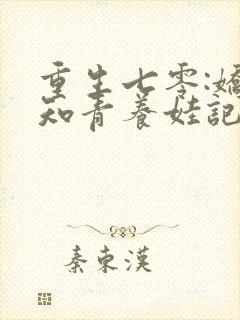 重生七零:嬌
知青養娃記
秦東漢